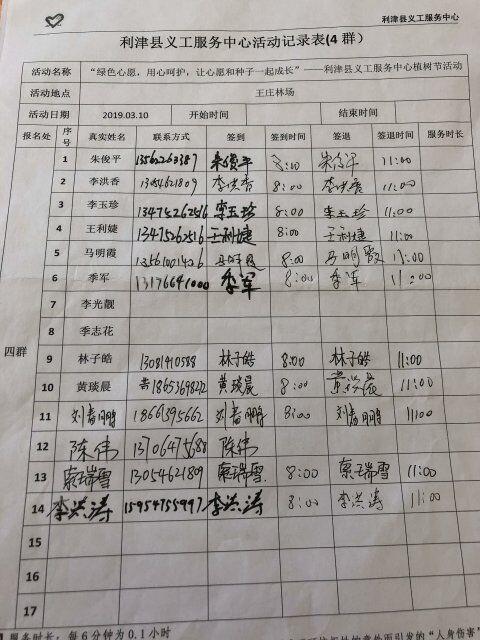 利津县义工服务中心
利津县义工服务中心活动记录表(4 群)
活动名称 “绿色心愿，用心呵护，让心愿和种子一起成长”——利津县义工服务中心植树节活动
活动地点 王庄林场
活动日期 2019.03.10 开始时间 结束时间
报名处 序号 真实姓名 联系方式 签到 签到时间 签退 签退时间 服务时长
四群
1 朱俊平 朱俊平 8:00 11:00
2 李洪香 李洪香 8:00 李洪香 11:00
3 李玉珍 13475262516 李玉珍 8:00 李玉珍 11:00
4 王利婕 13475262516 王利婕 8:00 王利婕 11:00
5 马明霞 马明霞 8:00 马明霞 11:00
6 季军 13176641000 季军 8:00 季军 11:00
7 李光靓
8 季志花
9 林子皓 13081410588 林子皓 8:00 林子皓 11:00
10 黄琰晨 黄琰晨 8:00 黄琰晨 11:00
11 刘春鹏 18661395662 刘春鹏 8:00 刘春鹏 11:00
12 陈伟 陈伟
13 索瑞雪 13054621809 索瑞雪 8:00 索瑞雪 11:00
14 李洪涛 15954755997 李洪涛 8:00 李洪涛 11:00
15
16
17
服务时长，每 6 分钟为 0.1 小时
意外而引发的“人身伤害”